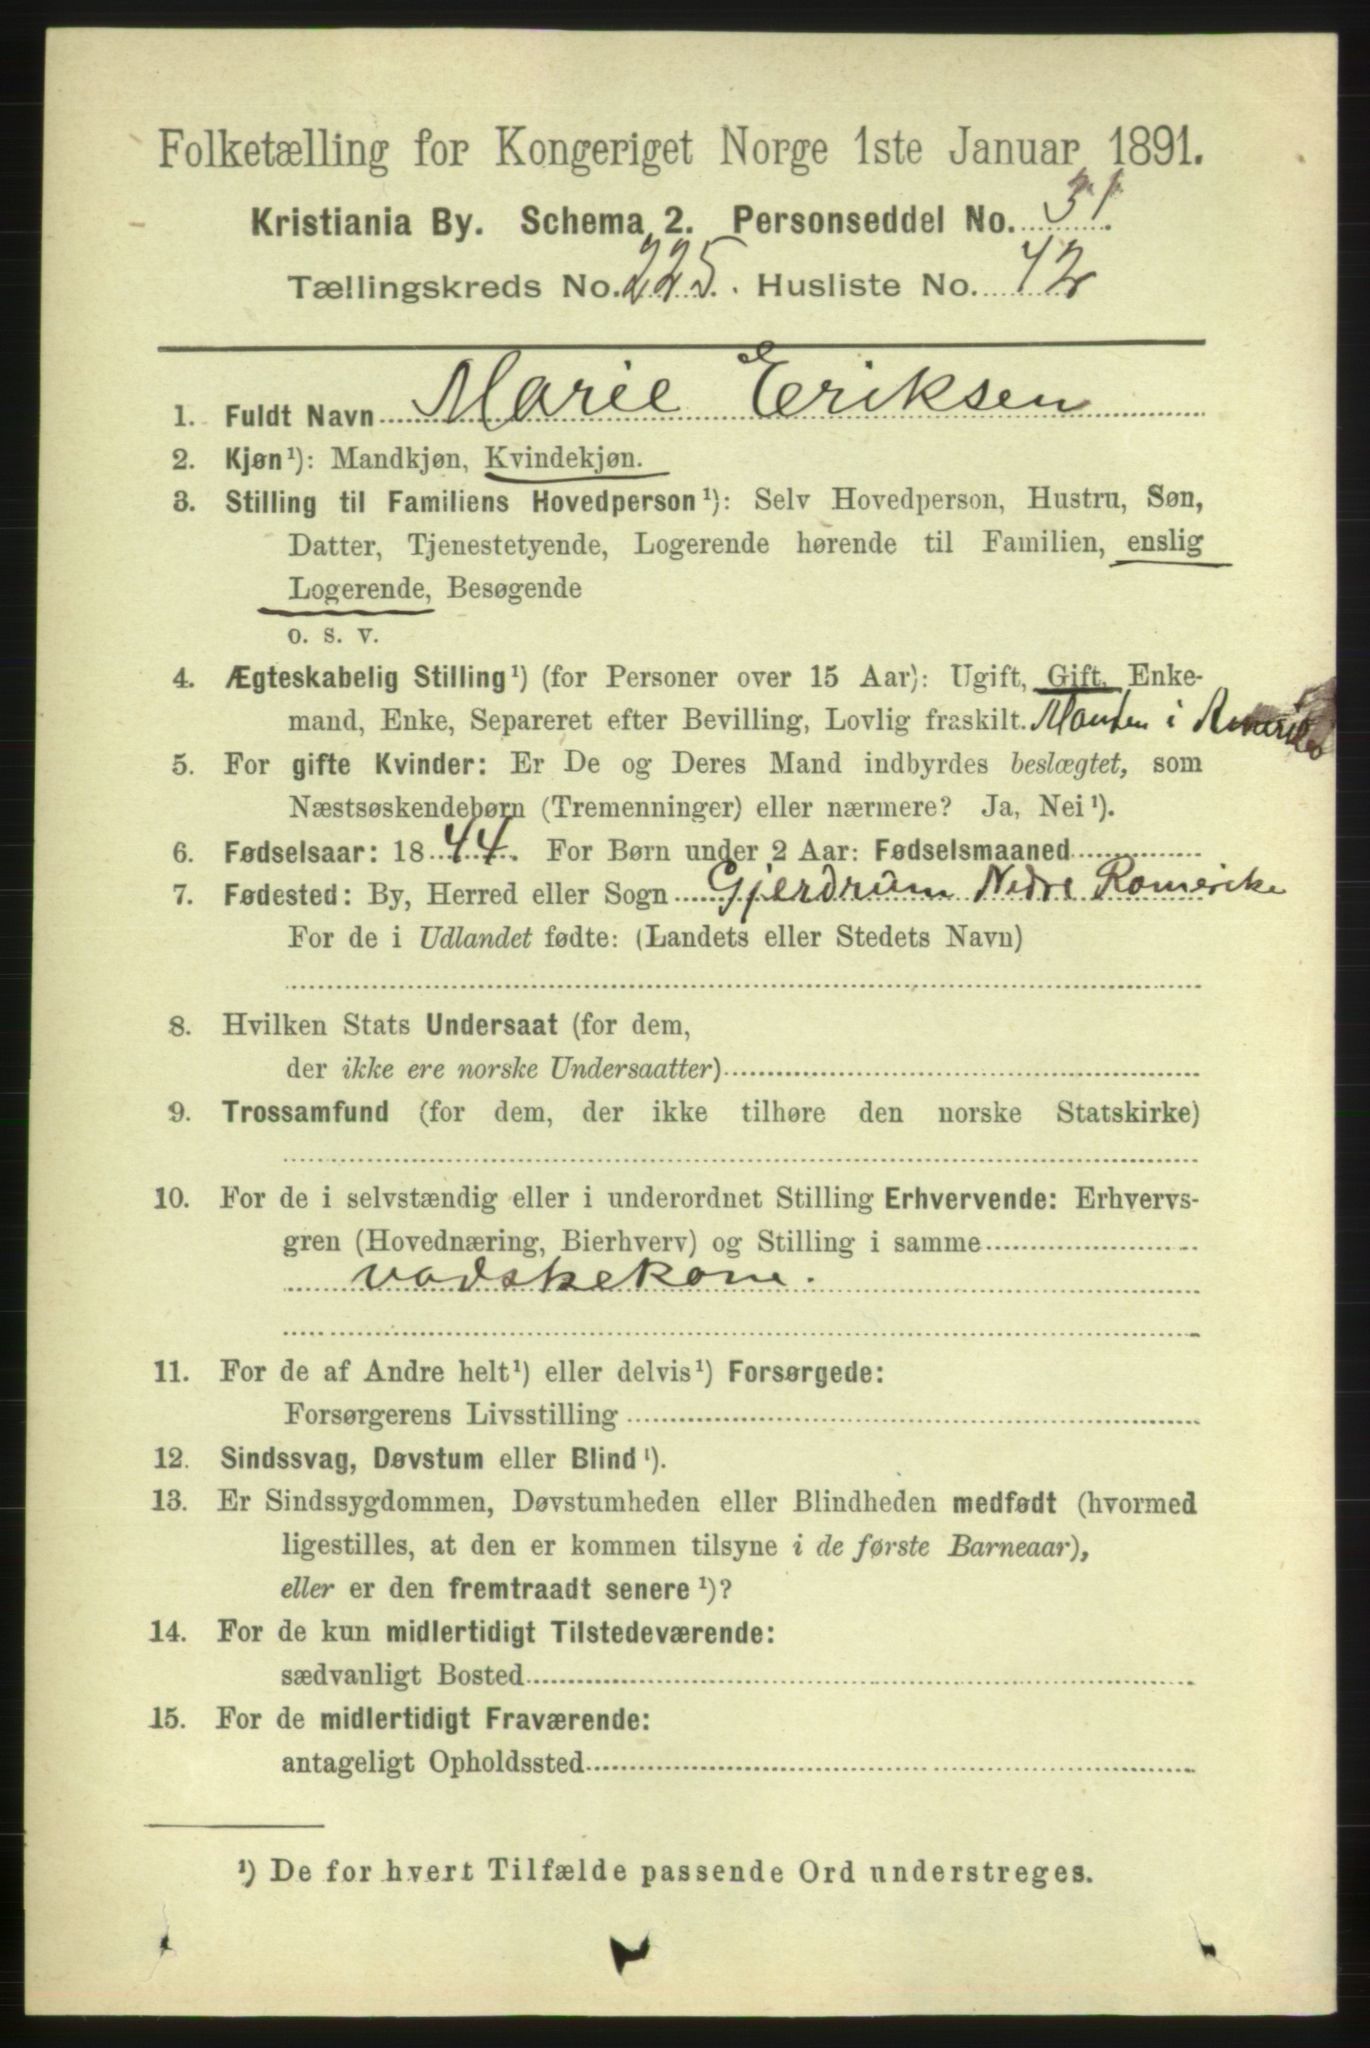 Folketælling for Kongeriget Norge 1ste Januar 1891.
Kristiania By. Schema 2. Personseddel No. 31.
Tællingskreds No. 225. Husliste No. 42
1. Fuldt Navn Marie Eriksen
2. Kjøn¹): Mandkjøn, Kvindekjøn.
3. Stilling til Familiens Hovedperson¹): Selv Hovedperson, Hustru, Søn,
Datter, Tjenestetyende, Logerende hørende til Familien, enslig
Logerende, Besøgende
o. s. v.
4. Ægteskabelig Stilling¹) (for Personer over 15 Aar): Ugift, Gift, Enke-
mand, Enke, Separeret efter Bevilling, Lovlig fraskilt. Manden i Amerika
5. For gifte Kvinder: Er De og Deres Mand indbyrdes beslægtet, som
Næstsøskendebørn (Tremenninger) eller nærmere? Ja, Nei¹).
6. Fødselsaar: 1844. For Børn under 2 Aar: Fødselsmaaned
7. Fødested: By, Herred eller Sogn Gjerdrum Nedre Romerike
For de i Udlandet fødte: (Landets eller Stedets Navn)
8. Hvilken Stats Undersaat (for dem,
der ikke ere norske Undersaatter)
9. Trossamfund (for dem, der ikke tilhøre den norske Statskirke)
10. For de i selvstændig eller i underordnet Stilling Erhvervende: Erhvervs-
gren (Hovednæring, Bierhverv) og Stilling i samme
vadskekone.
11. For de af Andre helt¹) eller delvis¹) Forsørgede:
Forsørgerens Livsstilling
12. Sindssvag, Døvstum eller Blind¹).
13. Er Sindssygdommen, Døvstumheden eller Blindheden medfødt (hvormed
ligestilles, at den er kommen tilsyne i de første Barneaar),
eller er den fremtraadt senere¹)?
14. For de kun midlertidigt Tilstedeværende:
sædvanligt Bosted
15. For de midlertidigt Fraværende:
antageligt Opholdssted
¹) De for hvert Tilfælde passende Ord understreges.